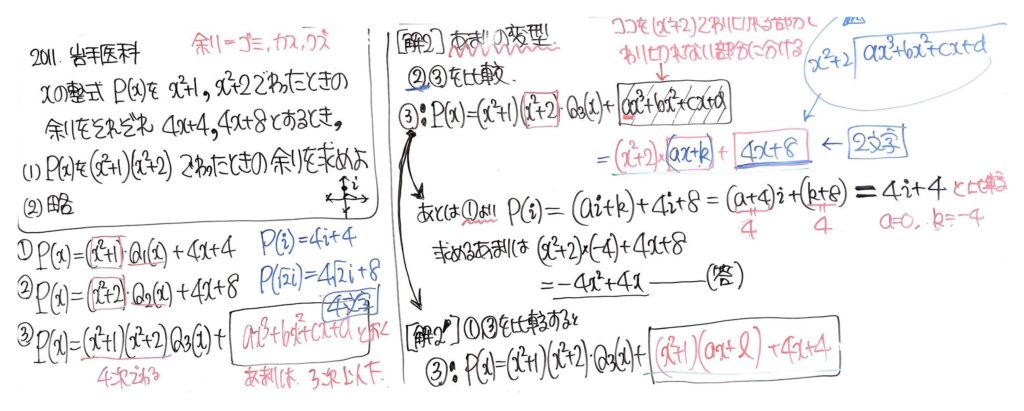 2011. 岩手医科
余り=ゴミ,カス,クズ
xの整式 P(x)を x²+1, x²+2でわったときの
余りをそれぞれ 4x+4, 4x+8とするとき。
(1) P(x)を(x²+1)(x²+2) でわったときの余りを求めよ
(2) 略
i
① P(x)=(x²+1)・Q₁(x)+4x+4
P(i)=4i+4
② P(x)=(x²+2)・Q₂(x)+4x+8
P(√2i)=4√2i+8
4文字
③ P(x)=(x²+1)(x²+2)Q₃(x)+ax³+bx²+cx+d とおく
4次でわる
あまりは、3次以下
[解2] あまりの変型
②,③を比較
ココを(x²+2)でわりきれる部分と
わりきれない部分に分ける
x²+2 ax³+bx²+cx+d
③: P(x)=(x²+1)(x²+2)・Q₃(x)+ax³+bx²+cx+d
=(x²+2)×(ax+k)+4x+8 ← 2文字
あとは①より P(i)=(ai+k)+4i+8=(a+4)i+(k+8)=4i+4 と比較
4 4
a=0, k=-4
求めるあまりは (x²+2)×(-4)+4x+8
=-4x²+4x ——(答)
[解2'] ①,③を比較すると
③: P(x)=(x²+1)(x²+2)・Q₃(x)+(x²+1)(ax+l)+4x+4